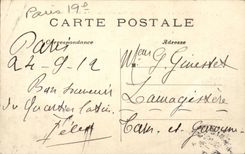 Paris 19e
CARTE POSTALE
Correspondance
Adresse
Paris
24-9-12
Bon souvenir
du Quartier Latin
Félix
G. Ginestet
Lamagistère
Tarn et Garonne